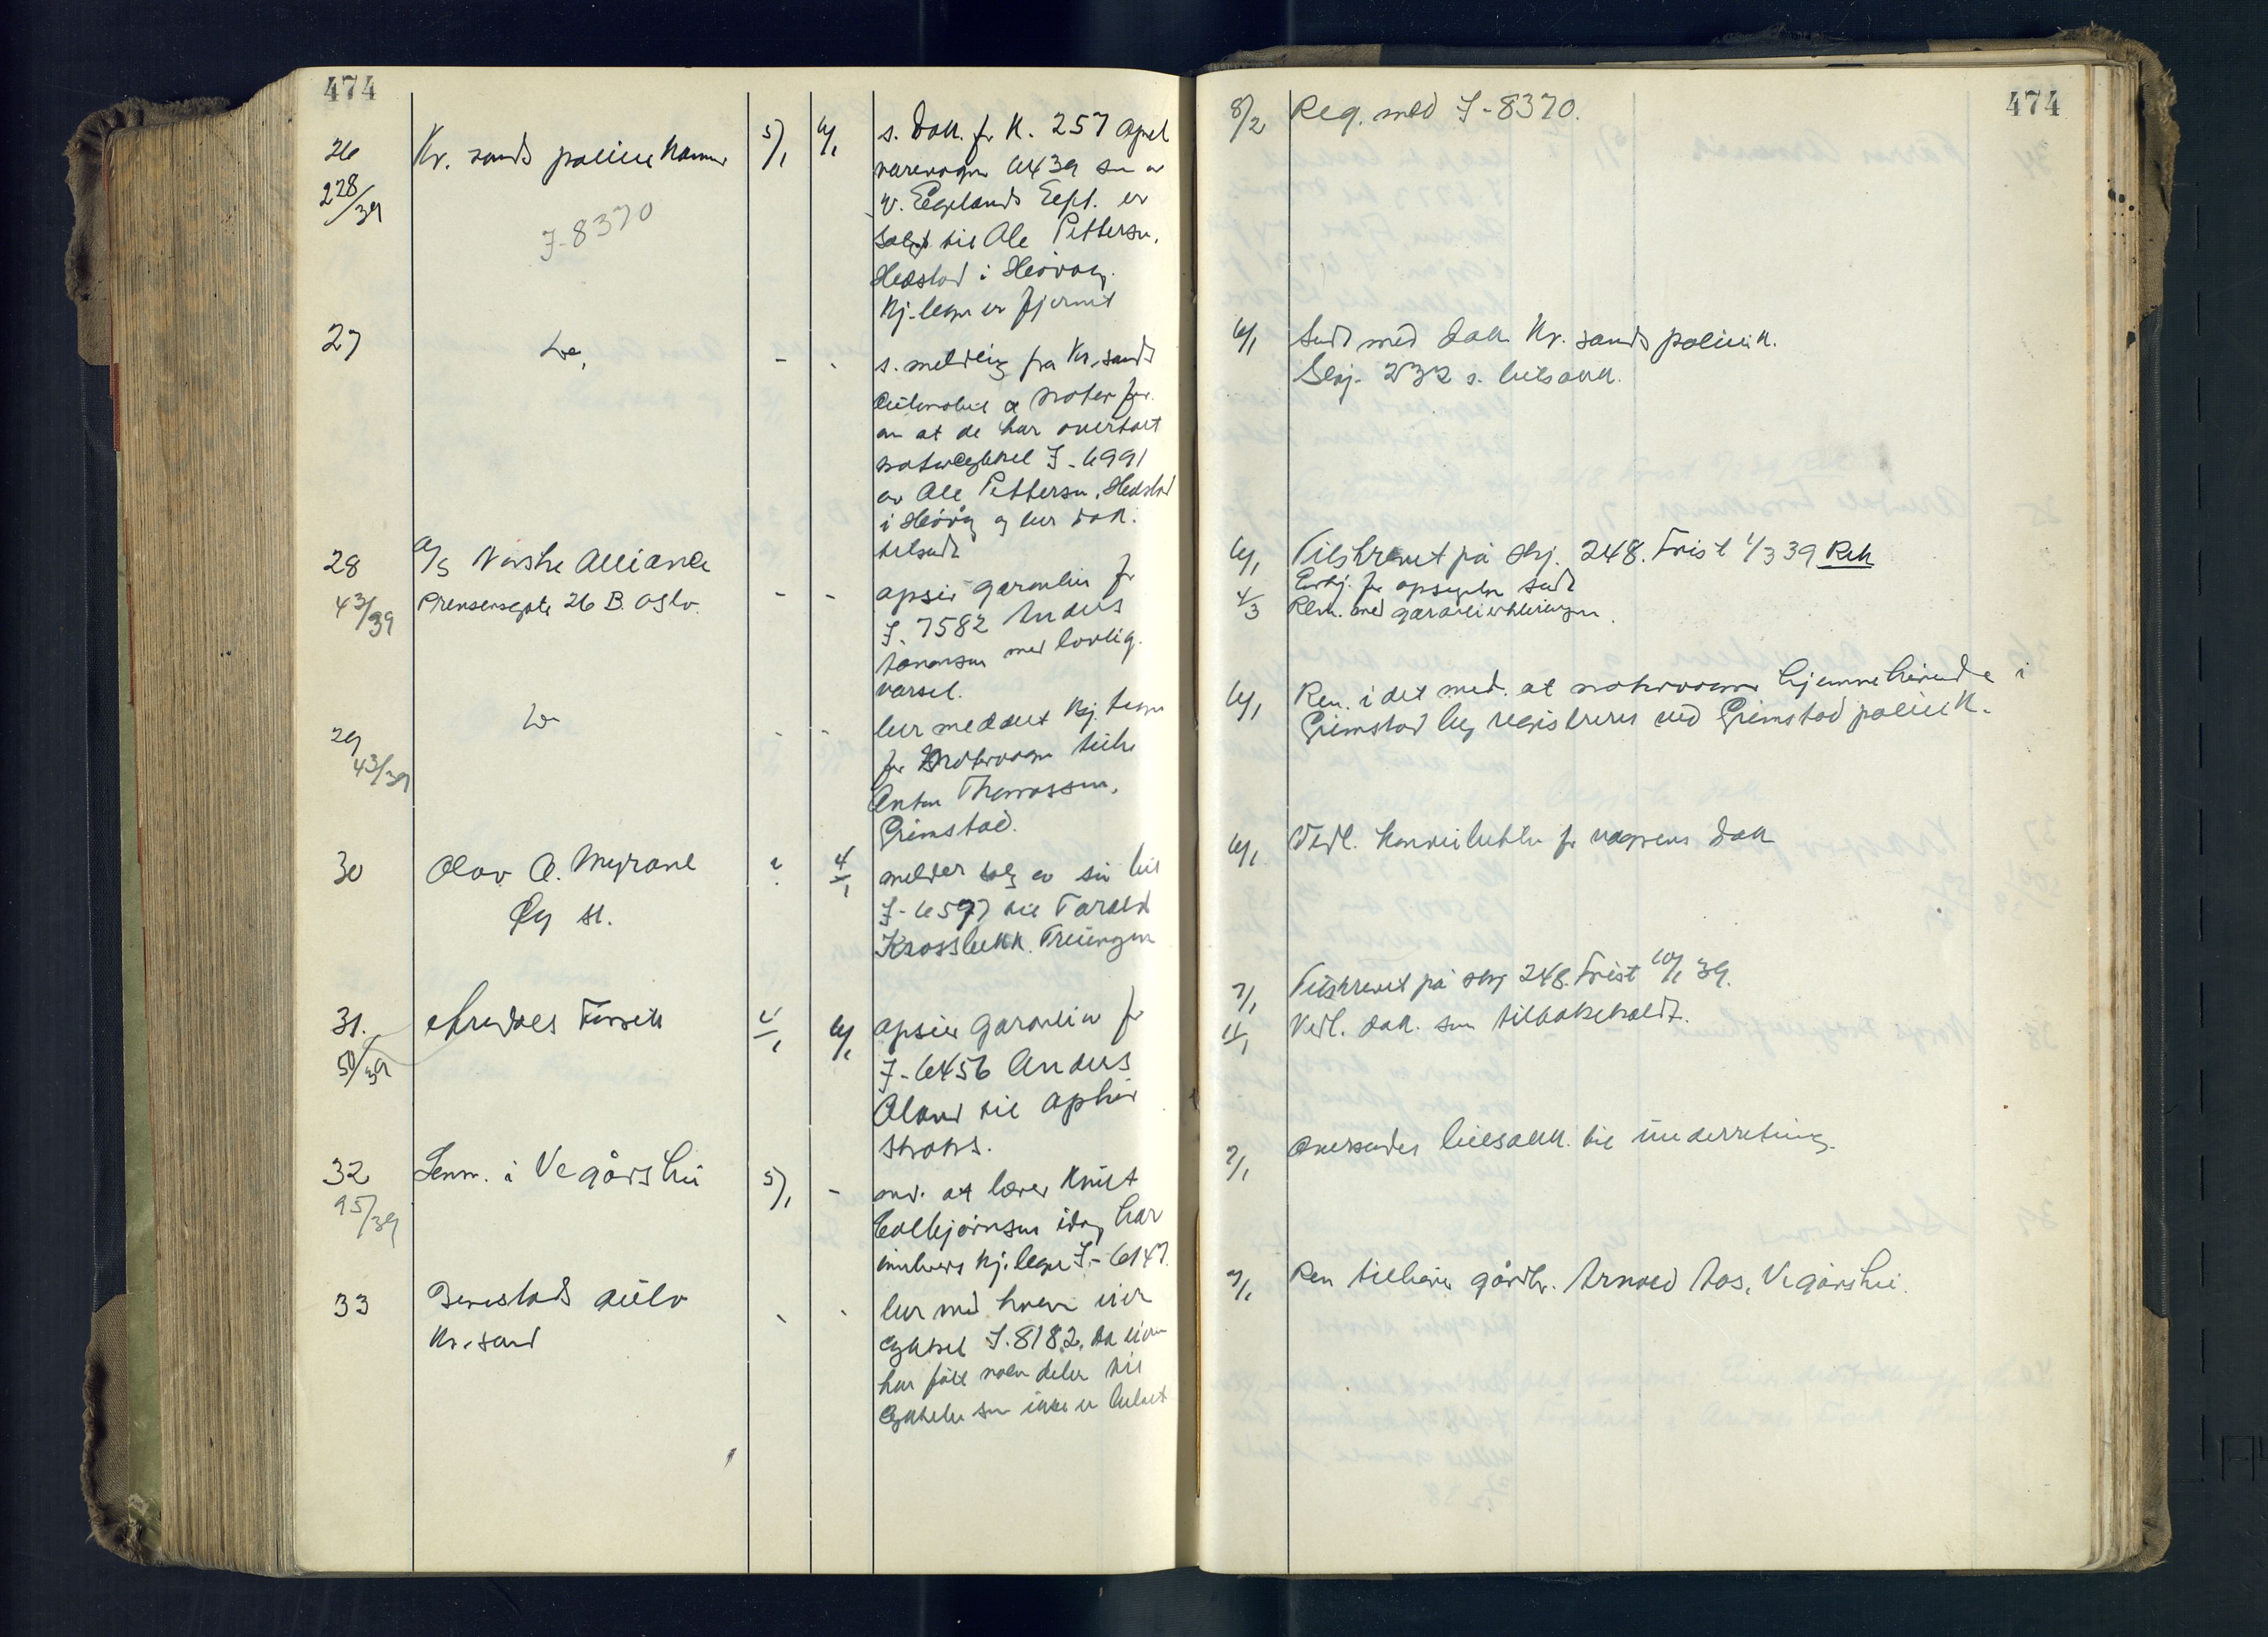 474
26
228/39
Kr. sands politikammer
J-8370
5/1
6/1
s. dok. for K. 257 Opel
varevogn 6439 som av
W. Eegelands Eeft. er
solgt til Ole Pettersen,
Hæstad i Høvåg.
Kj.tegn er fjernet
27
Do,
-
s. melding fra Kr.sands
automobil & motor for.
om at de har overtatt
motorcykkel J-6991
av Ole Pettersen, Hæstad
i Høvåg og ber dok.
tilsendt
28
43/39
A/S Norske Alliance
Prinsensgate 26 B. Oslo.
- -
opsier garantien for
J. 7582 Anders
med lovlig
varsel.
29
43/39
Do
- -
ber meddelt kj. tegn
for motorvogn tilh.
Anton Thomassen,
Grimstad.
30
Olav O. Myrane
st.
4/1
melder salg av sin bil
J-6597 til Tarald
Krossbekk. Treungen
31.
50/39
Arendals Forsik
4/1
6/1
opsier garantien for
J-6456 Anders
Oland til ophør
straks.
32
95/39
Lensm. i Vegårshei
5/1
-
med. at lærer Knut
Colbjørnsen idag har
innlevert kj.tegn J-6147
33
auto
Kr.sand
ber med hvem eier
cykkel J.8182, da
har fått noen deler til
cykkelen som ikke er betalt
474
8/2 Reg. med J-8370.
6/1 Sendt med dok Kr. sands politik.
Skj. 232 s. bilsakk.
6/1 Tilskrevet på skj. 248. Frist 1/3 39 Rek
Erkj. for opsigelsen sendt
4/3 Ren. med garantierklæringen.
6/1 Ren. i det med. at motorvogner hjemmehørende i
Grimstad by registreres ved Grimstad politik.
6/1 Vedl. for vognens dok
7/1 Tilskrevet på skj 248. Frist 10/1 39.
11/1 Vedl. dok. som tilbakeholdt.
7/1 Oversendes bilsakk. til underretning.
7/1 Ren tilhører gårdbr. Arnold Aas, Vegårshei.